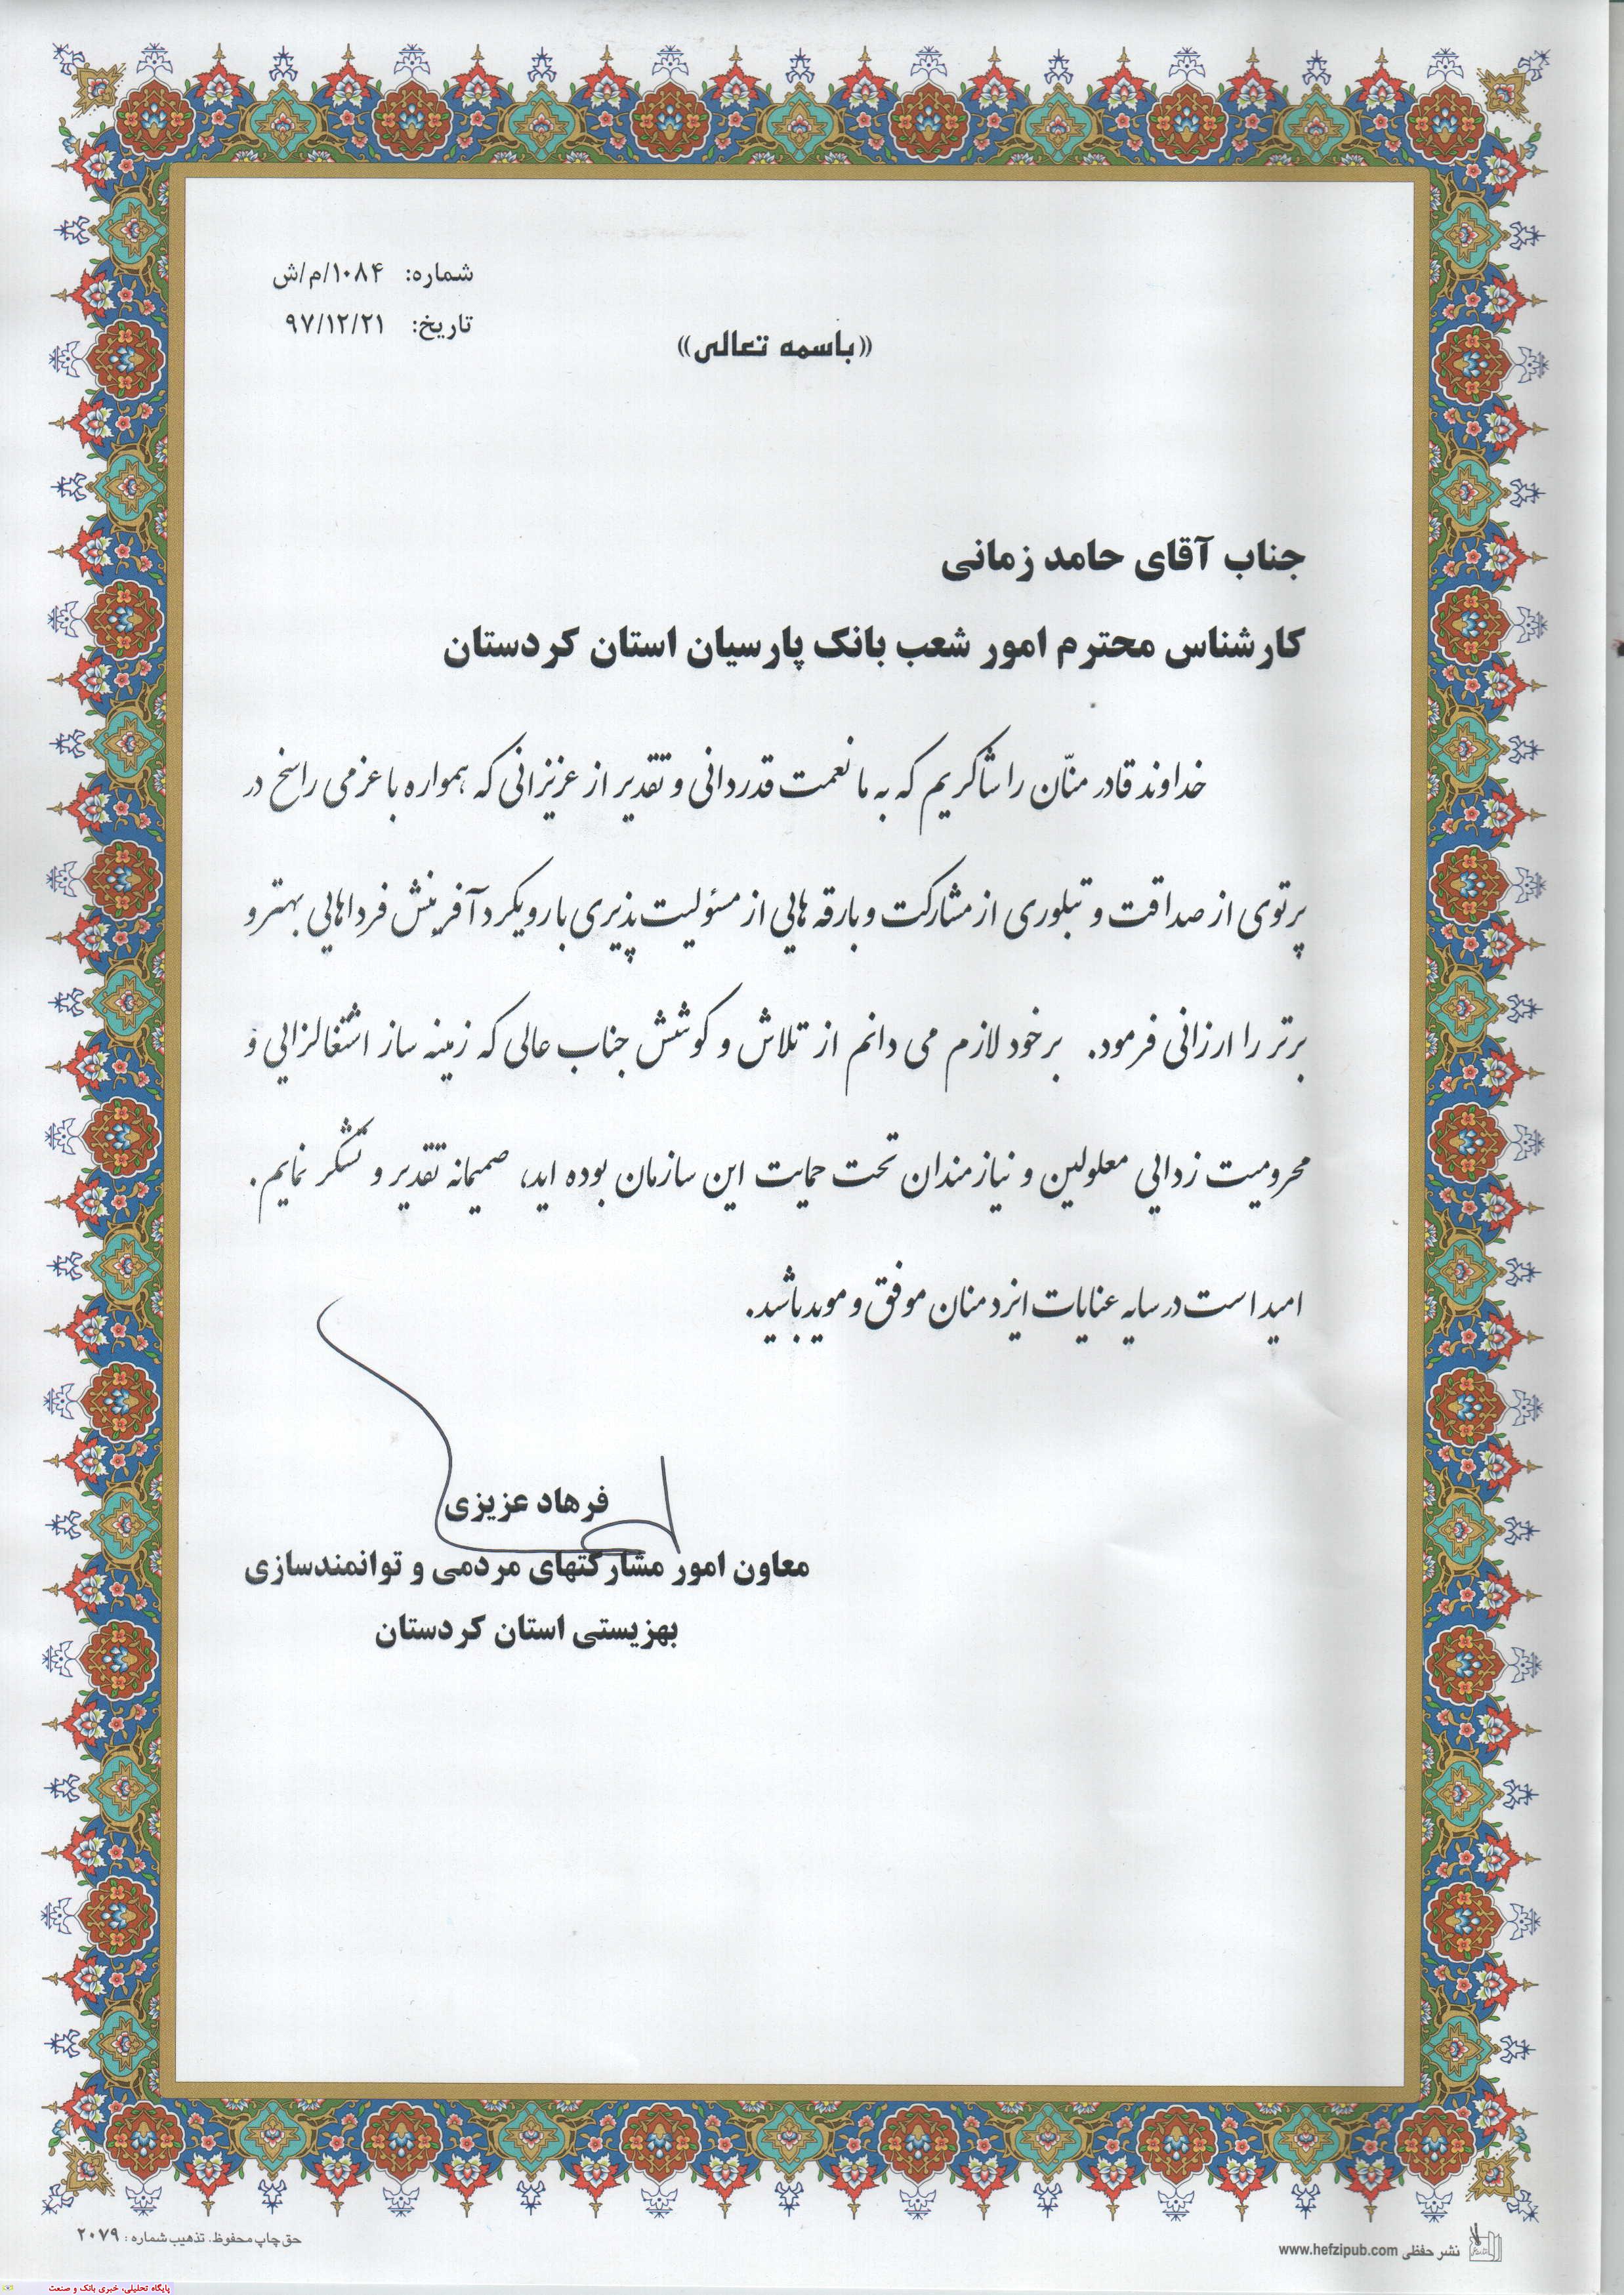 شماره: ۱۰۸۴/م/ش
تاریخ: ۹۷/۱۲/۲۱
((باسمه تعالی))
جناب آقای حامد زمانی
کارشناس محترم امور شعب بانک پارسیان استان کردستان
خداوند قادر منّان را شاکریم که به ما نعمت قدردانی و تقدیر از عزیزانی که همواره با عزمی راسخ در
پرتوی از صداقت و تبلوری از مشارکت و بارقه هایی از مسئولیت پذیری با رویکرد آفرینش فرداهایی بهتر و
برتر را ارزانی فرمود. برخود لازم می دانم از تلاش و کوشش جناب عالی که زمینه ساز اشتغالزایی و
محرومیت زدایی معلولین و نیازمندان تحت حمایت این سازمان بوده اید، صمیمانه تقدیر و تشکر نمایم.
امید است در سایه عنایات ایزد منان موفق و موید باشید.
فرهاد عزیزی
معاون امور مشارکتهای مردمی و توانمندسازی
بهزیستی استان کردستان
نشر حفظی www.hefzipub.com
حق چاپ محفوظ. تذهیب شماره : ۲۰۷۹
پایگاه تحلیلی، خبری بانک و صنعت